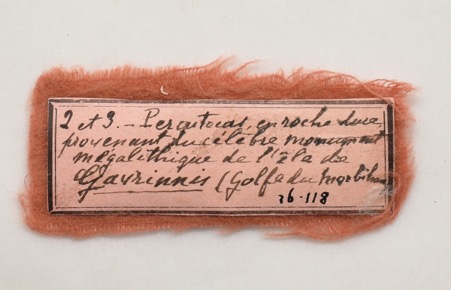 2 et 3. — Percuteurs, en roche dure,
provenant du célèbre monument
mégalithique de l'île de
Gavrinnis (Golfe du Morbihan
76.118